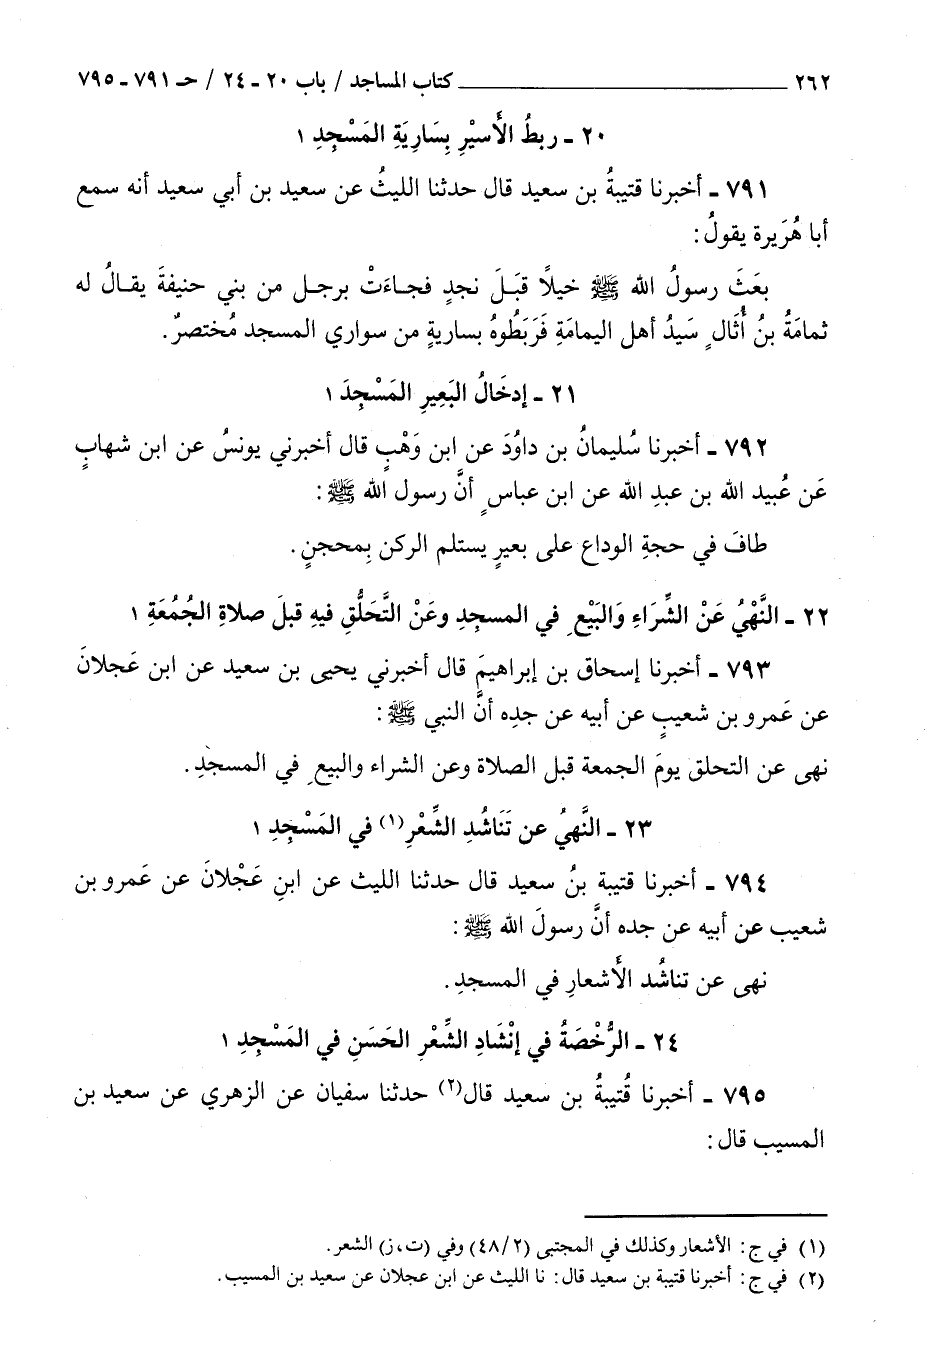 ٢٦٢ ــــــــ كتاب المساجد / باب ٢٠ ـ ٢٤ / حـ ٧٩١ ـ ٧٩٥
٢٠ ـ ربطُ الأَسيْرِ بِسَارِيَةِ المَسْجِدِ ١
٧٩١ ـ أخبرنا قتيبةُ بن سعيد قال حدثنا الليثُ عن سعيد بن أبي سعيد أنه سمع
أبا هُرَيرة يقولُ :
بعَثَ رسولُ الله ﷺ خيلًا قبَلَ نجدٍ فجاءَتْ برجل من بني حنيفةَ يقالُ له
ثمامَةُ بنُ أُثَالٍ سَيدُ أهل اليمامَةِ فَرَبَطُوهُ بساريةٍ من سواري المسجد مُختصرٌ .
٢١ ـ إدخَالُ البَعِيرِ المَسْجِدَ ١
٧٩٢ ـ أخبرنا سُليمانُ بن داوُدَ عن ابن وَهْبٍ قال أخبرني يونسُ عن ابن شهابٍ
عَن عُبيد الله بن عبدِ الله عن ابن عباسٍ أنَّ رسول الله ﷺ :
طافَ في حجةِ الوداع على بعيرٍ يستلم الركن بِمحجنٍ .
٢٢ ـ النَّهْيُ عَنْ الشِّرَاءِ وَالبَيْعِ في المسجِدِ وعَنْ التَّحَلُّقِ فيهِ قبلَ صلاةِ الجُمُعَةِ ١
٧٩٣ ـ أخبرنا إسحاق بن إبراهيمَ قال أخبرني يحيى بن سعيد عن ابن عَجلانَ
عن عَمرو بن شعيبٍ عن أبيه عن جدِه أنَّ النبي ﷺ :
نهى عن التحلق يومَ الجمعة قبل الصلاة وعن الشراء والبيعِ في المسجدِ .
٢٣ ـ النَّهيُ عن تَنَاشُدِ الشِّعْرِ(١) في المَسْجِدِ ١
٧٩٤ ـ أخبرنا قتيبة بنُ سعيد قال حدثنا الليث عن ابنِ عَجْلانَ عن عَمرو بن
شعيب عن أبيه عن جده أنَّ رسولَ الله ﷺ :
نهى عن تناشُد الأَشعارِ في المسجدِ .
٢٤ ـ الرُّخْصَةُ في إنْشَادِ الشِّعْرِ الحَسَنِ في المَسْجِدِ ١
٧٩٥ ـ أخبرنا قُتيبةُ بن سعيد قال(٢) حدثنا سفيان عن الزهري عن سعيد بن
المسيب قال :
(١) في ج : الأشعار وكذلك في المجتبى (٤٨/٢) وفي (ت،ز) الشعر .
(٢) في ج : أخبرنا قتيبة بن سعيد قال : نا الليث عن ابن عجلان عن سعيد بن المسيب .